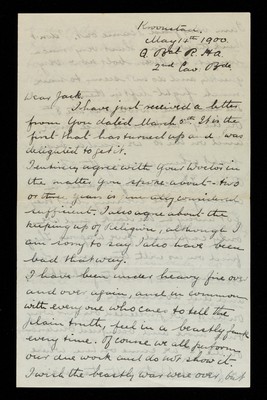 Kroonstad,
May 14th 1900.
Q Bat R.H.A
2nd Cav Bde
Dear Jack.
I have just received a letter
from you dated March 5th It is the
first that has turned up and I was
delighted to get it.
I entirely agree with your Doctor in
the matter you spoke about - two
or three years is in my considered
sufficient. I also agree about the
keeping up of Religion, although I
am sorry to say I also have been
bad that way.
I have been under heavy fire over
and over again, and in common
with every one who cares to tell the
plain truth, feel in a beastly funk
every time. Of course we all perform
our due work and do not show it.
I wish the beastly war were over, but